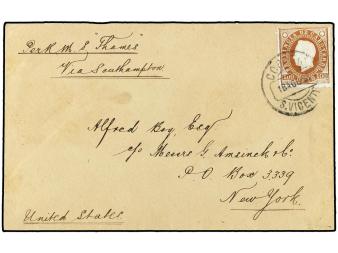 Per R. M. S. "Thames"
Via Southampton
Alfred Boy, Esq
c/o Messrs G. Amsinck & Co.
P. O Box 3339
New York.
United States
S. VICENTE